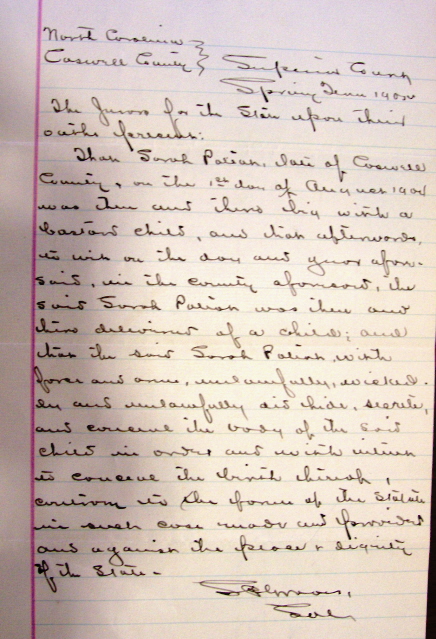 North Carolina
Caswell County } Superior Court
Spring Term 190
The Jurors for the State upon their
oaths present:
That Sarah Patian, late of Caswell
County, on the 1st day of August 190
was then and there big with a
bastard child, and that afterwards,
to wit on the day and year afore-
said, in the county aforesaid, the
said Sarah Patian was then and
there delivered of a child; and
that the said Sarah Patian, with
force and arms, unlawfully, wicked-
ly and unlawfully did hide, secrete,
and conceal the body of the said
child in order and with intent
to conceal the birth thereof,
contrary to the form of the Statute
in such case made and provided
and against the peace & dignity
of the State.
Sol.